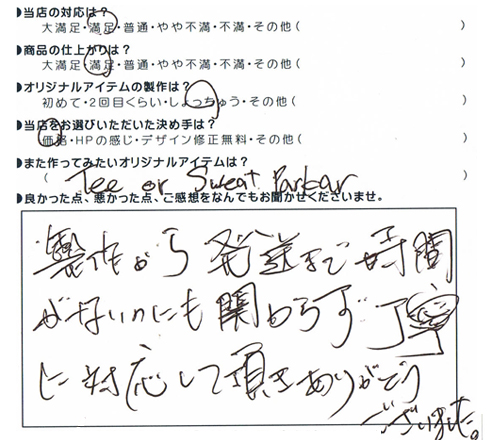 ▶当店の対応は？
大満足・満足・普通・やや不満・不満・その他（　）
▶商品の仕上がりは？
大満足・満足・普通・やや不満・不満・その他（　）
▶オリジナルアイテムの製作は？
初めて・2回目くらい・しょっちゅう・その他（　）
▶当店をお選びいただいた決め手は？
価格・HPの感じ・デザイン修正無料・その他（　）
▶また作ってみたいオリジナルアイテムは？
（ Tee or Sweat Parkar ）
▶良かった点、悪かった点、ご感想をなんでもお聞かせくださいませ。
製作から発送まで時間
がないのにも関わらず丁寧
に対応して頂きありがとう
ございました。